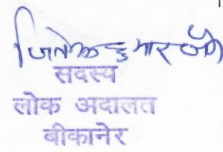 सदस्य
लोक अदालत
बीकानेर